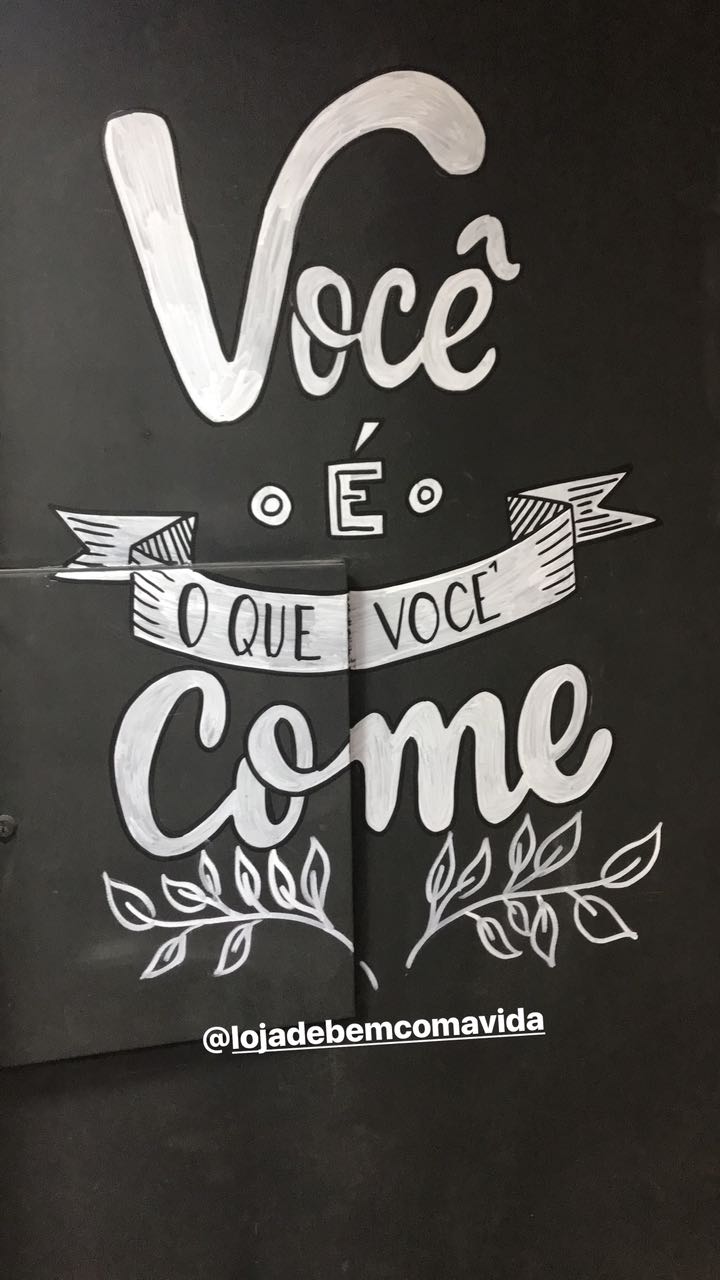 Você
É
O QUE VOCÊ
Come
@lojadebemcomavida